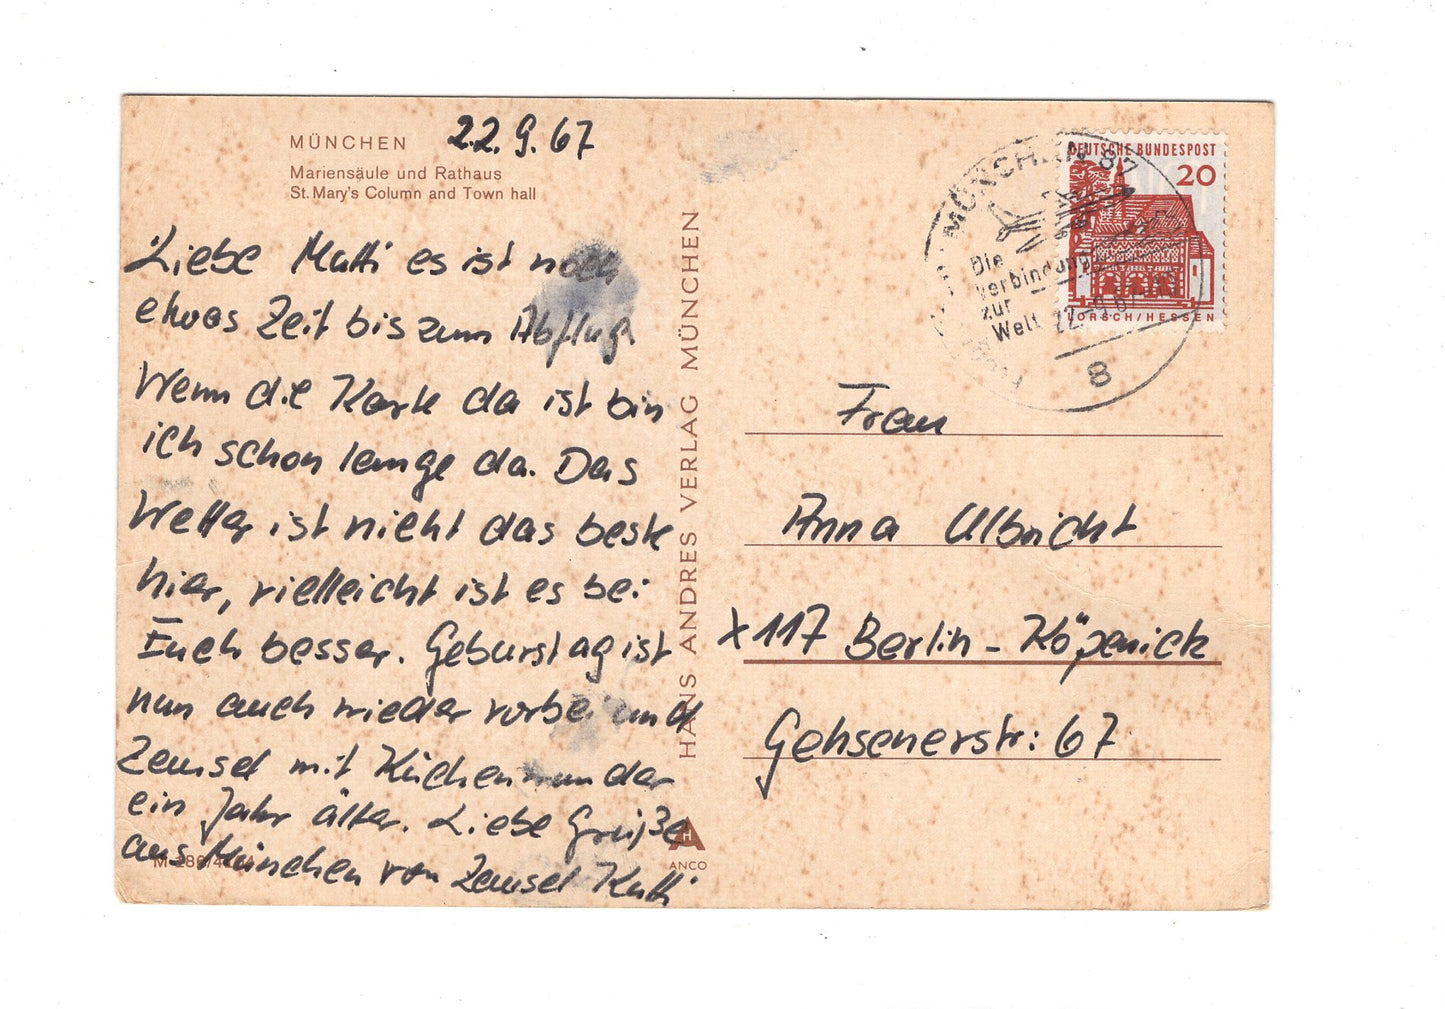 MÜNCHEN
22.9.67
Mariensäule und Rathaus
St. Mary's Column and Town hall
Liebe Mutti es ist noch
etwas Zeit bis zum Abflug
Wenn die Karte da ist bin
ich schon lange da. Das
Wetter ist nicht das beste
hier, vielleicht ist es bei
Euch besser. Geburstag ist
nun auch wieder vorbei und
mit
ein Jahr älter. Liebe Grüße
aus München von
HANS ANDRES VERLAG MÜNCHEN
ANCO
MÜNCHEN 87
Die
Verbindung
zur
Welt
8
DEUTSCHE BUNDESPOST
20
LORSCH/HESSEN
Frau
Anna Ulbricht
X 117 Berlin - Köpenick
Gehsenerstr: 67